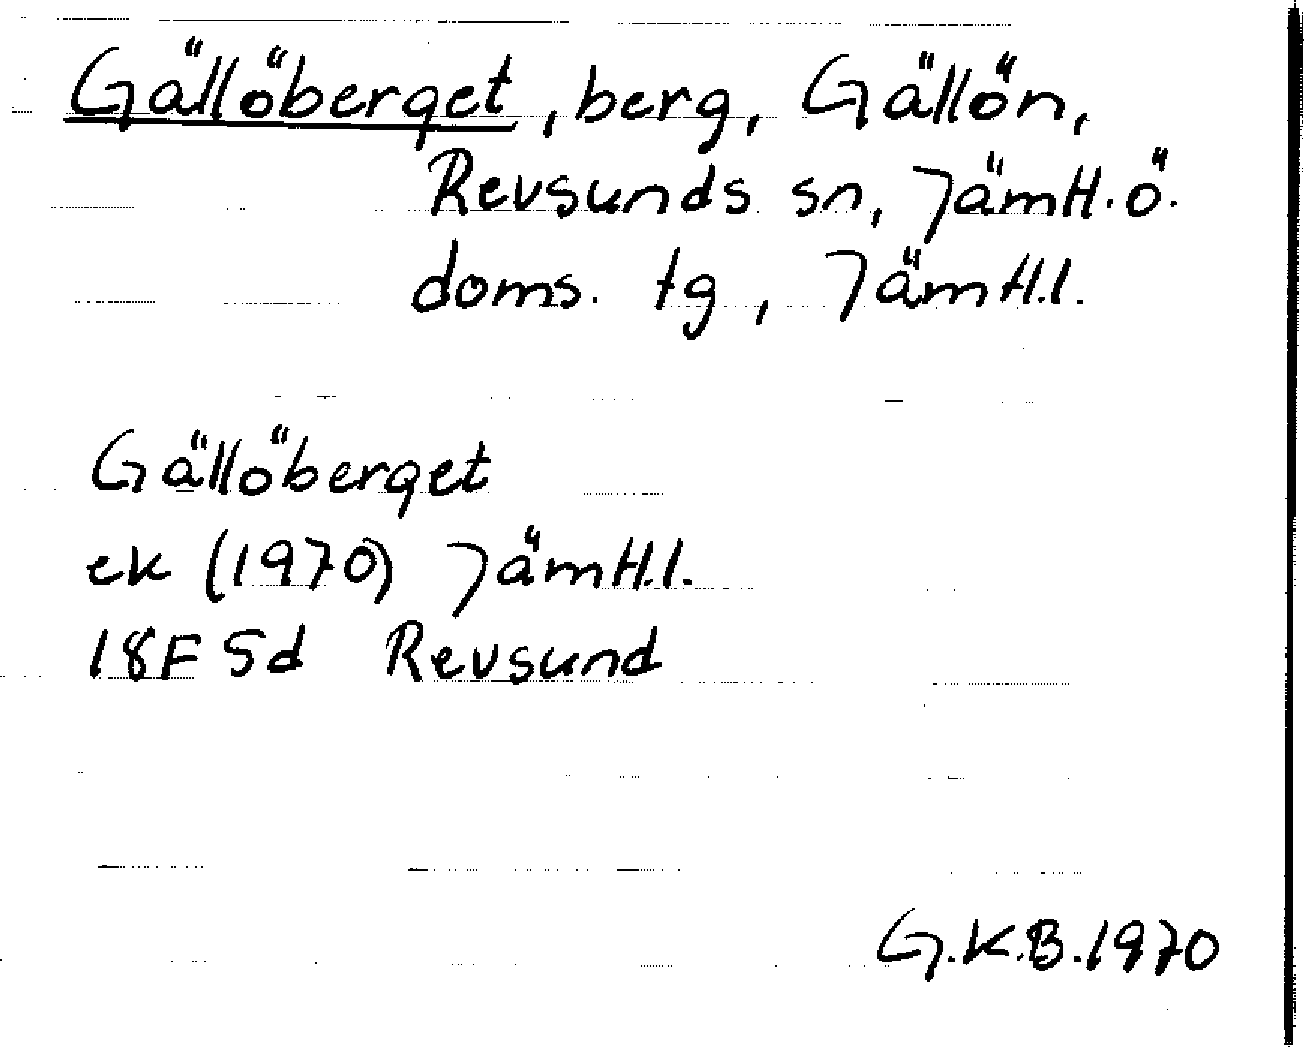 Gällöberget, berg, Gällön,
Revsunds sn, Jämtl. ö.
doms. tg, Jämtl. l.
Gällöberget
ek (1970) Jämtl. l.
18F 5d Revsund
G.K.B. 1970